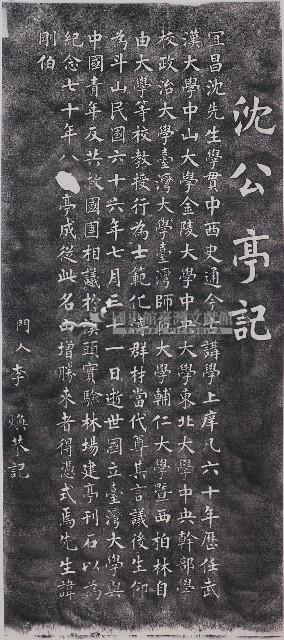 沈公亭記
宜昌沈先生學貫中西史通今古講學上庠凡六十年歷任武
漢大學中山大學金陵大學中央大學東北大學中央幹部學
校政治大學臺灣大學臺灣師範大學輔仁大學暨西柏林自
由大學等校教授行為士範化溥群材當代尊其言議後生仰
為斗山民國六十六年七月三十一日逝世國立臺灣大學與
中國青年反共救國團相議於溪頭實驗林場建亭刊石以為
紀念七十年八 亭成從此名山增勝來者得憑式焉先生諱
剛伯
門人李煥恭記